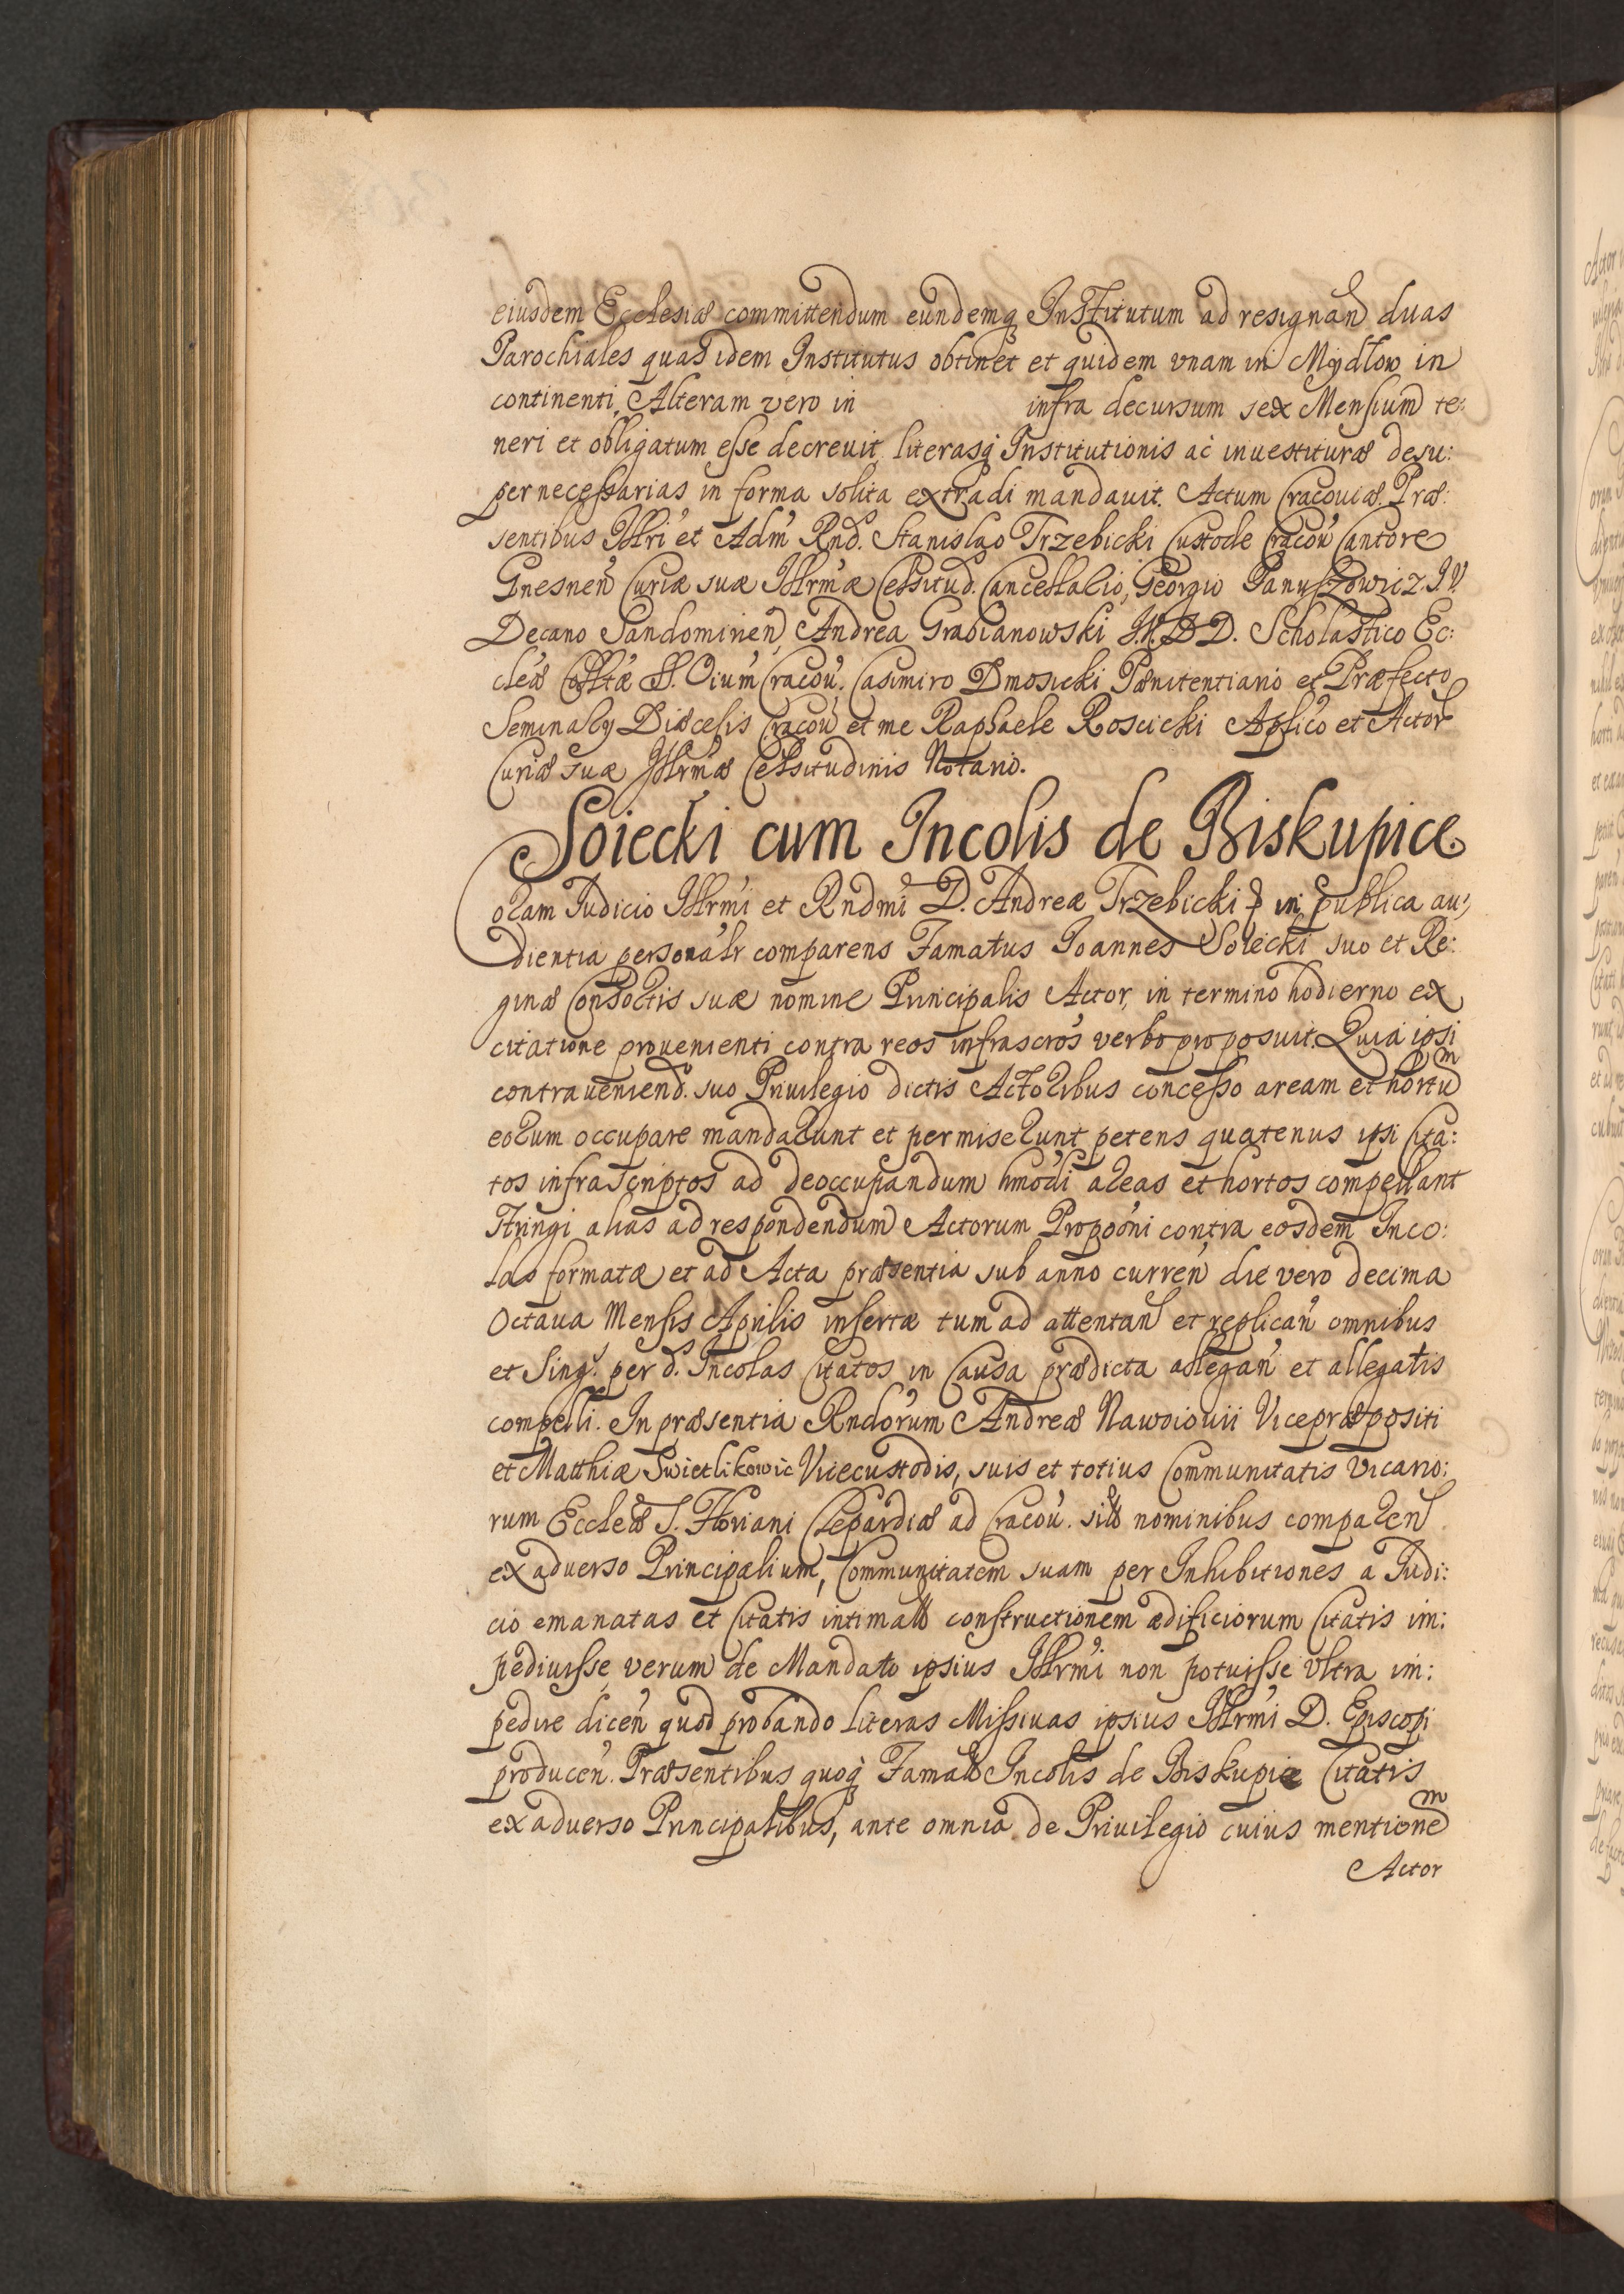 eiusdem Ecclesiæ committendum eundemq Institutum ad resignan duas
Parochiales quas idem Institutus obtinet et quidem vnam in Mydlow in
continenti, Alteram vero in infra decursum sex Mensium te:
neri et obligatum esse decreuit, literasq Institutionis ac inuestituræ desu:
per necessarias in forma solita extradi mandauit. Actum Cracouiæ. Præ:
sentibus Illri et Adm Rnd. Stanislao Trzebicki Custode Cracou Cantore
Gnesnen Curiæ suæ Illrmæ Celsitud. Cancellario, Georgio Januszowicz I.V.
Decano Sandomirien, Andrea Grabianowski I.V.D.D. Scholastico Ec:
cleæ Colltæ SS. Oium Cracou. Casimiro Dmosicki Pænitentiario et Præfecto
Seminarÿ Diæcesis Cracou et me Raphaele Roscicki Aplico et Actor
Curiæ suæ Illrmæ Celsitudinis Notario.
Soiecki cum Incolis de Biskupice
Coram Iudicio Illrmi et Rndmi D. Andreæ Trzebicki in publica au:
dientia personalr comparens Famatus Ioannes Soiecki suo et Re:
ginæ Consortis suæ nomine Principalis Actor, in termino hodierno ex
citatione prouenienti contra reos infrascros verbo proposuit. Quia ipsi
contraueniend. suo Priuilegio dictis Actoribus concesso aream et hortum
eorum occupare mandarunt et permiserunt petens quatenus ipsi Cita:
tos infrascriptos ad deoccupandum hmodi areas et hortos compellant
stringi alias ad respondendum Actorum Propooni contra eosdem Inco:
las formatæ et ad Acta præsentia sub anno curren die vero decima
Octaua Mensis Aprilis insertæ tum ad attentan et replican omnibus
et Sing. per d. Incolas Citatos in Causa prædicta allegan et allegatis
compelli. In præsentia Rndorum Andreæ Nawoiouii Vicepræpositi
et Matthiæ Swietlikowic Vicecustodis, suis et totius Communitatis Vicario:
rum Eccleæ S. Floriani Clepardiæ ad Cracou. sitæ nominibus comparen
ex aduerso Principalium, Communitatem suam per Inhibitiones a Iudi:
cio emanatas et Citatis intimatas constructionem ædificiorum Citatis im:
pediuisse, verum de Mandato ipsius Illrmi non potuisse vltra im:
pedire dicen quod probando literas Missiuas ipsius Illrmi D. Episcopi
producen. Præsentibus quoq Famatis Incolis de Biskupice Citatis
ex aduerso Principalibus, ante omnia de Priuilegio cuius mentionem
Actor